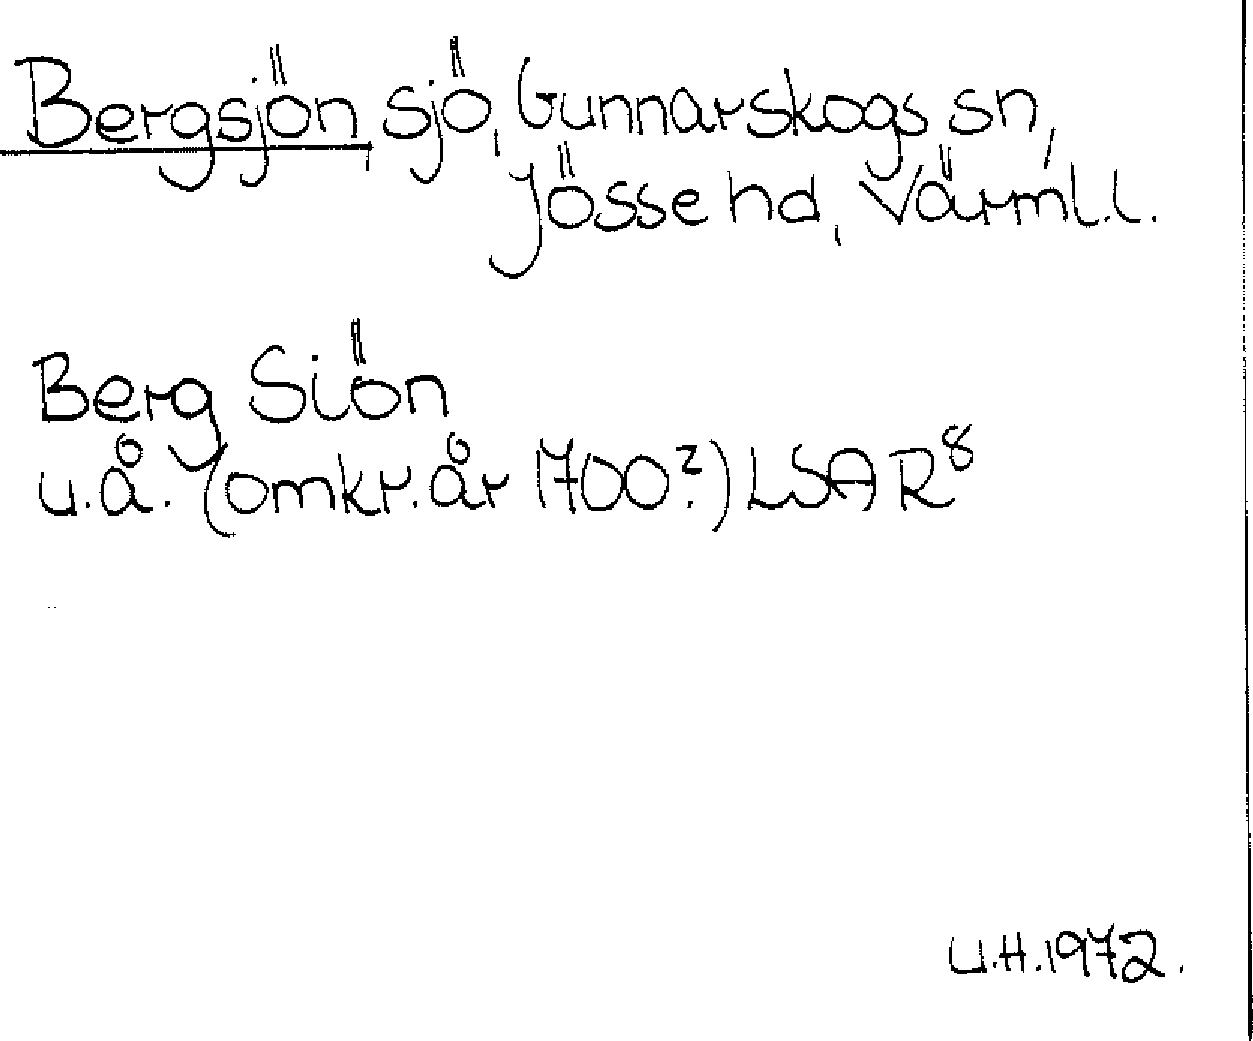 Bergsjön, sjö, Gunnarskogs sn,
Jösse hd, Värml.l.
Berg Siön
u.å. (omkr. år 1700?) LSAR⁸
U.H. 1972.